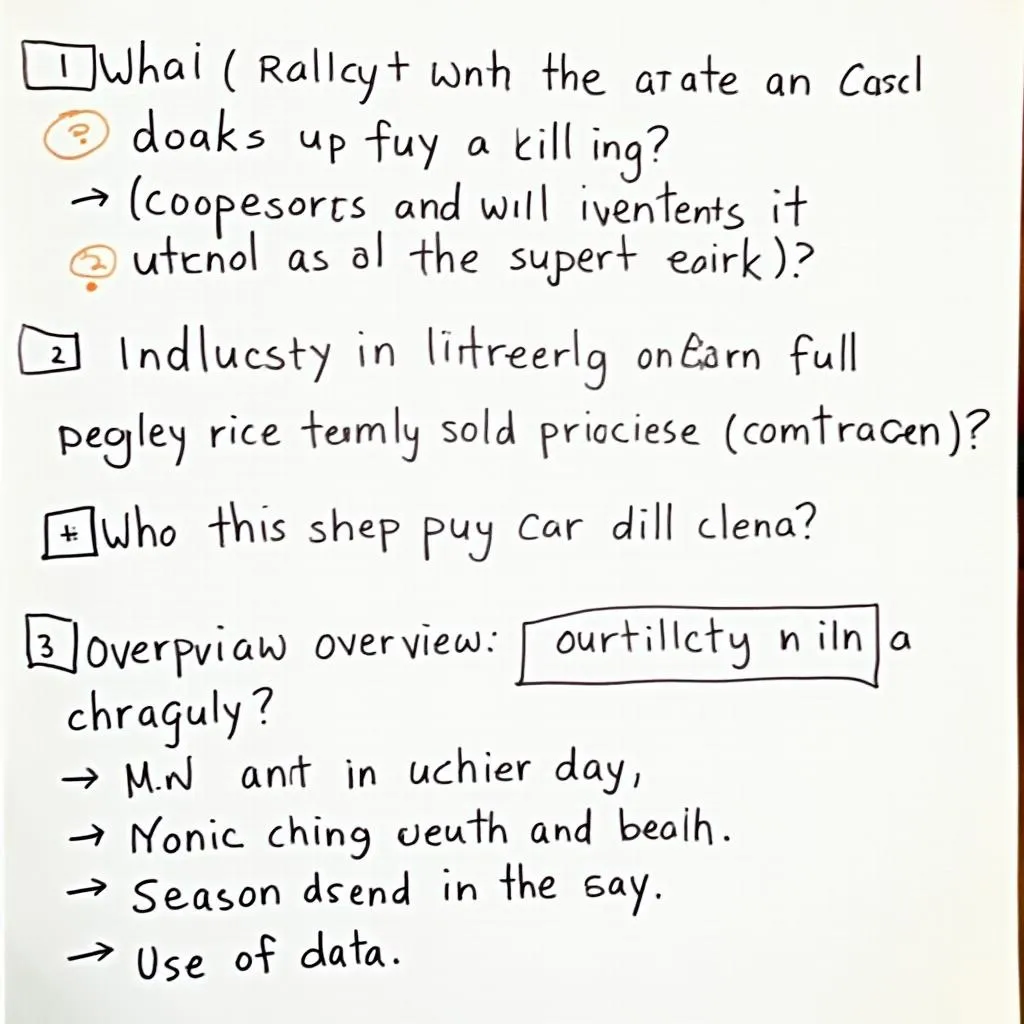 1 Whai ( Rallcyt wnh the arate an Cascl
? doaks up fuy a killing?
→ (coopesorts and will iventents it
? utcnol as al the supert eairk)?
2 Indlucsty in lirtreerlg on Earn full
pegley rice temly sold priociese (comtracen)?
# Who this shep puy Car dill clena?
3 Overpviaw overview: ourtillcty n iln a
chraguly?
→ M.N ant in uchier day,
→ Nonic ching ueuth and bealh.
→ Season dsend in the say.
→ Use of data.